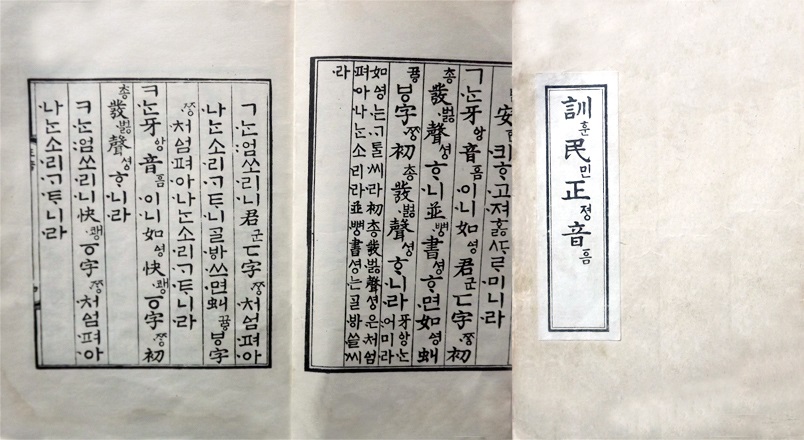 訓훈民민正정音흠
安킈ᄒᆞ고져ᄒᆞᇙᄯᆞᄅᆞ미니라
ㄱᄂᆞᆫ牙ᅌᅡᆼ音흠이니如ᅀᅧᆼ君군ㄷ字ᄍᆞᆼ初
총發벓聲셩ᄒᆞ니並뼝書셩ᄒᆞ면如ᅀᅧᆼ虯
ᄭᅲᇢㅸ字ᄍᆞᆼ初총發벓聲셩ᄒᆞ니라牙ᅌᅡᆼᄂᆞᆫ어미라
如ᅀᅧᆼ는ᄀᆞᄐᆞᆯ씨라初총發벓聲셩은처ᅀᅥᆷ
펴아나ᄂᆞᆫ소리라並뼝書셩는ᄀᆞᆯᄫᅡ쓸씨
라
ㄱᄂᆞᆫ엄쏘리니君군ㄷ字ᄍᆞᆼ처ᅀᅥᆷ펴아
나ᄂᆞᆫ소리ᄀᆞᄐᆞ니ᄀᆞᆯᄫᅡ쓰면虯ᄭᅲᇢㅸ字
ᄍᆞᆼ처ᅀᅥᆷ펴아나ᄂᆞᆫ소리ᄀᆞᄐᆞ니라
ㅋᄂᆞᆫ牙ᅌᅡᆼ音흠이니如ᅀᅧᆼ快쾡ㆆ字ᄍᆞᆼ初
총發벓聲셩ᄒᆞ니라
ㅋᄂᆞᆫ엄쏘리니快쾡ㆆ字ᄍᆞᆼ처ᅀᅥᆷ펴아
나ᄂᆞᆫ소리ᄀᆞᄐᆞ니라